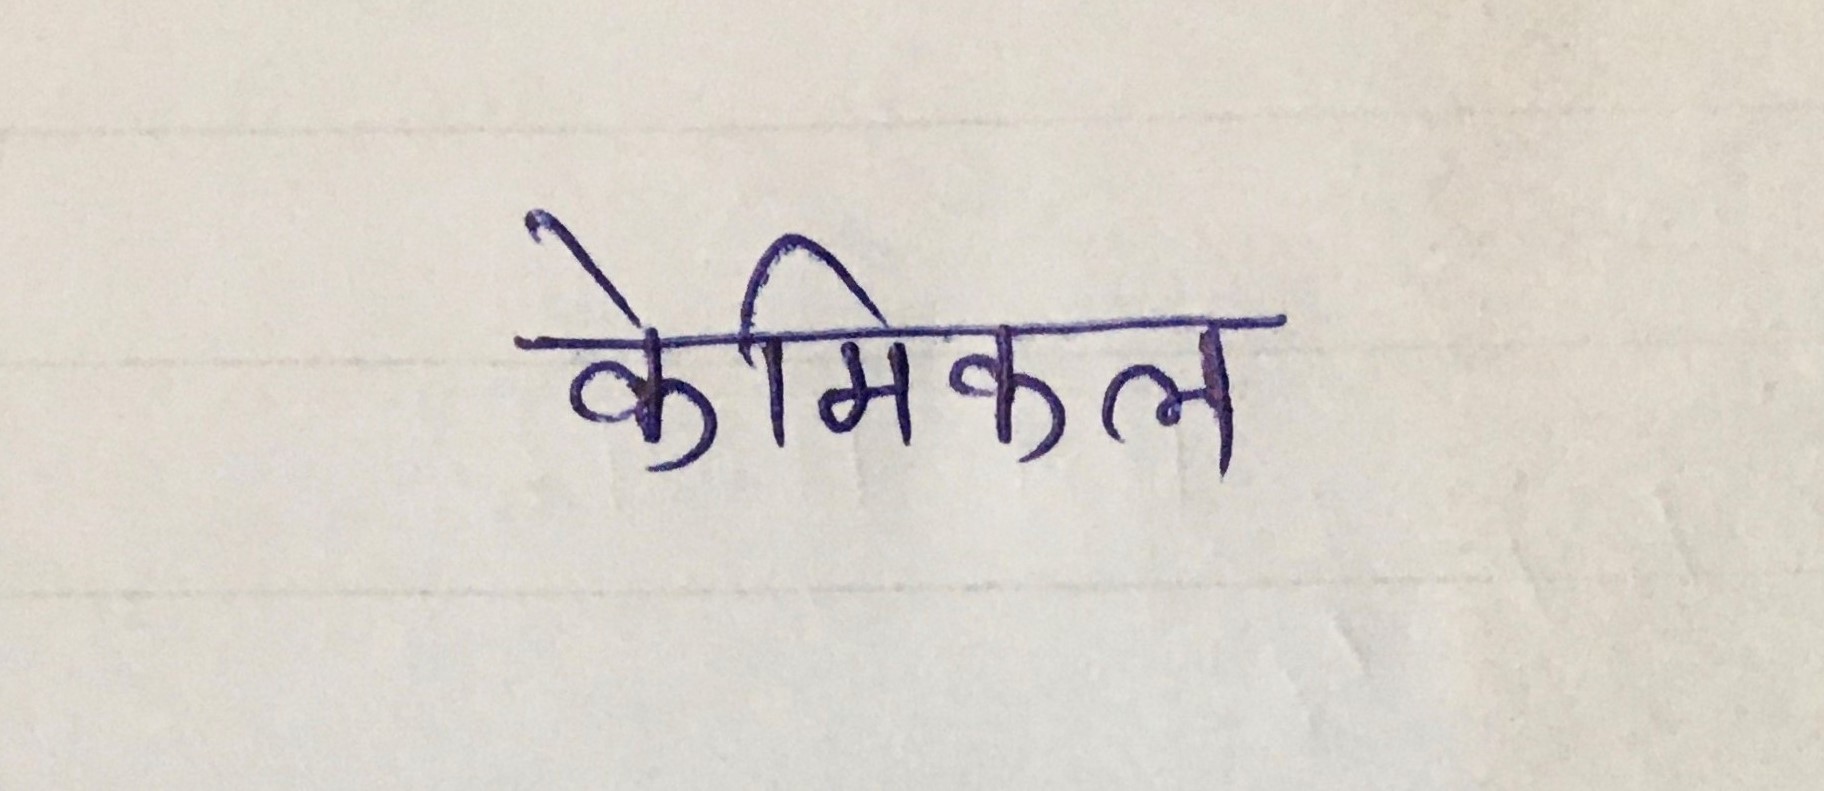 केमिकल